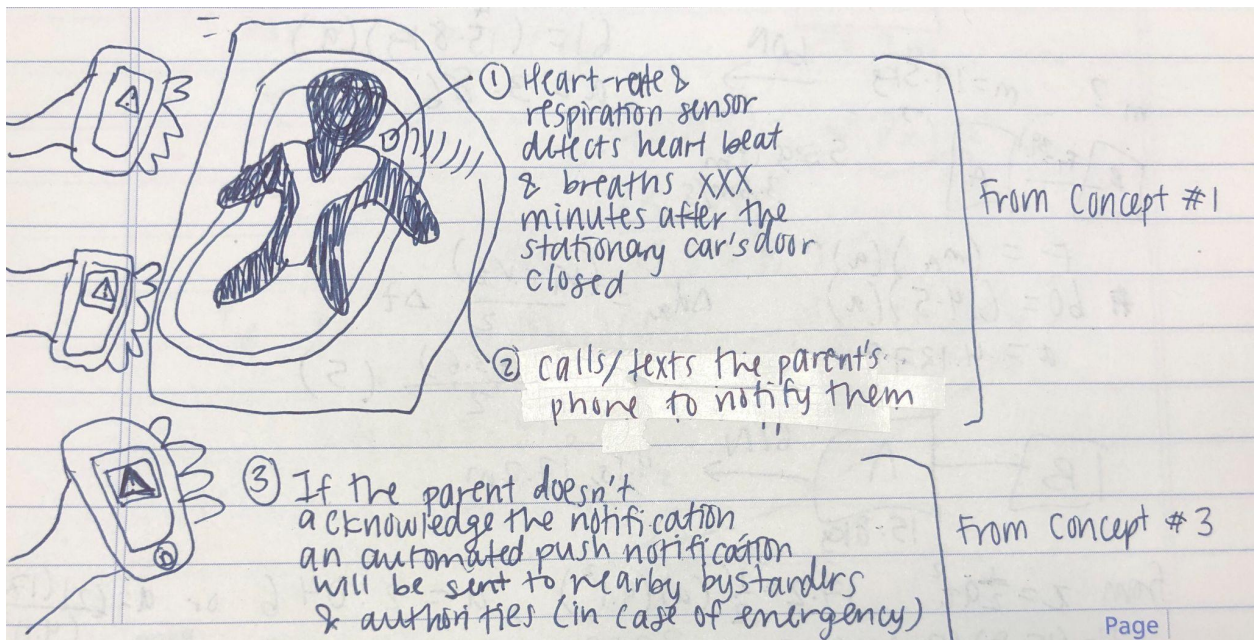 ① Heart-rate &
respiration sensor
detects heart beat
& breaths XXX
minutes after the
stationary car's door
closed
From Concept #1
② calls/texts the parent's
phone to notify them
③ If the parent doesn't
acknowledge the notification
an automated push notification
will be sent to nearby bystanders
& authorities (in case of emergency)
From Concept #3
Page